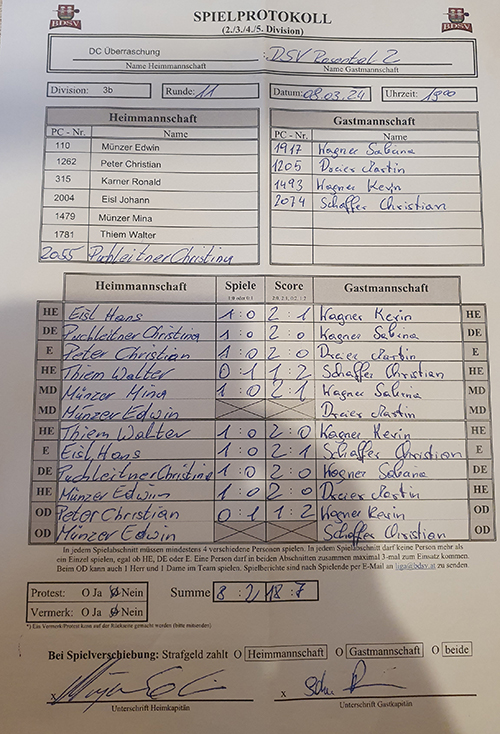 BDSV
SPIELPROTOKOLL
BDSV
(2./3./4./5. Division)
DC Überraschung : DSV Rosental 2
Name Heimmannschaft Name Gastmannschaft
Division: 3b Runde: 11 Datum: 08.03.24 Uhrzeit: 1900
Heimmannschaft Gastmannschaft
PC - Nr. Name PC - Nr. Name
110 Münzer Edwin 1917 Wagner Sabina
1262 Peter Christian 1205 Dreier Martin
315 Karner Ronald 1493 Wagner Kevin
2004 Eisl Johann 2074 Schaffer Christian
1479 Münzer Mina
1781 Thiem Walter
2055 Puchleitner Christina
Heimmannschaft Spiele Score Gastmannschaft
1:0 oder 0:1 2:0, 2:1, 0:2, 1:2
HE Eisl Hans 1 : 0 2 : 1 Wagner Kevin HE
DE Puchleitner Christina 1 : 0 2 : 0 Wagner Sabina DE
E Peter Christian 1 : 0 2 : 0 Dreier Martin E
HE Thiem Walter 0 : 1 1 : 2 Schaffer Christian HE
MD Münzer Mina 1 : 0 2 : 1 Wagner Sabina MD
MD Münzer Edwin Dreier Martin MD
HE Thiem Walter 1 : 0 2 : 0 Wagner Kevin HE
E Eisl Hans 1 : 0 2 : 1 Schaffer Christian E
DE Puchleitner Christina 1 : 0 2 : 0 Wagner Sabina DE
HE Münzer Edwin 1 : 0 2 : 0 Dreier Martin HE
OD Peter Christian 0 : 1 1 : 2 Wagner Kevin OD
OD Münzer Edwin Schaffer Christian OD
In jedem Spielabschnitt müssen mindestens 4 verschiedene Personen spielen. In jedem Spielabschnitt darf keine Person mehr als
ein Einzel spielen, egal ob HE, DE oder E. Eine Person darf in beiden Abschnitten zusammen maximal 3-mal zum Einsatz kommen.
Beim OD kann auch 1 Herr und 1 Dame im Team spielen. Spielberichte sind nach Spielende per E-Mail an liga@bdsv.at zu senden.
Protest: O Ja O Nein Summe 8 : 2 18 : 7
Vermerk: O Ja O Nein
*) Ein Vermerk/Protest kann auf der Rückseite gemacht werden (bitte mitsenden)
Bei Spielverschiebung: Strafgeld zahlt O Heimmannschaft O Gastmannschaft O beide
x x
Unterschrift Heimkapitän Unterschrift Gastkapitän